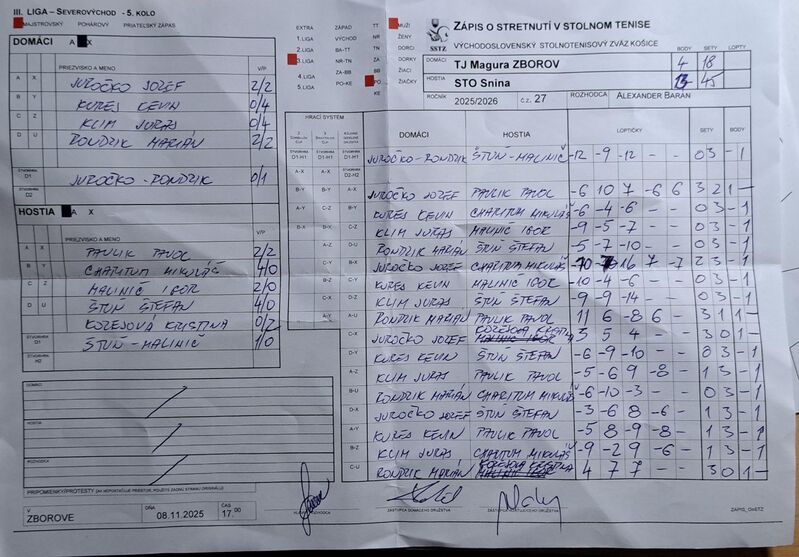 III. LIGA – SEVEROVÝCHOD - 5. KOLO
MAJSTROVSKÝ POHÁROVÝ PRIATEĽSKÝ ZÁPAS
DOMÁCI A X
PRIEZVISKO A MENO V/P
A X JUROČKO JOZEF 2/2
B Y KUREŠ KEVIN 0/4
C Z KLIM JURAJ 0/4
D U RONDZIK MARIÁN 2/2
ŠTVORHRA D1 JUROČKO-RONDZIK 0/1
HOSTIA A X
PRIEZVISKO A MENO V/P
A X PAVLIK PAVOL 2/2
B Y CHARITUM MIKULÁŠ 4/0
C Z MALINIČ IGOR 2/0
D U ŠTUŇ ŠTEFAN 4/0
KOZEJOVÁ KRISTINA 0/2
ŠTVORHRA D1 ŠTUŇ-MALINIČ 1/0
H2
DOMÁCI
HOSTIA
ROZHODCA
PRIPOMIENKY/PROTESTY
V ZBOROVE DŇA 08.11.2025 ČAS 17.00
EXTRA ZÁPAD TT MUŽI
1.LIGA VÝCHOD NR ŽENY
2.LIGA BA-TT TN DORCI
3.LIGA NR-TN ZA DORKY
4.LIGA ZA-BB ŽIACI
5.LIGA PO-KE PO ŽIAČKY
KE
SSTZ
ZÁPIS O STRETNUTÍ V STOLNOM TENISE
VÝCHODOSLOVENSKÝ STOLNOTENISOVÝ ZVÄZ KOŠICE
BODY SETY LOPTY
DOMÁCI TJ Magura ZBOROV 4 18
HOSTIA STO Snina 13 45
ROČNÍK 2025/2026 č.z. 27 ROZHODCA ALEXANDER BARAN
HRACÍ SYSTÉM DOMÁCI HOSTIA LOPTIČKY SETY BODY
D1-H1 JUROČKO-RONDZIK ŠTUŇ-MALINIČ -12 -9 -12 - - 0 3 - 1
A-X JUROČKO JOZEF PAVLIK PAVOL -6 10 7 -6 6 3 2 1 -
B-Y KUREŠ KEVIN CHARITUM MIKULÁŠ -6 -4 -6 - - 0 3 - 1
KLIM JURAJ MALINIČ IGOR -9 -5 -7 - - 0 3 - 1
RONDZIK MARIÁN ŠTUŇ ŠTEFAN -5 -7 -10 - - 0 3 - 1
JUROČKO JOZEF CHARITUM MIKULÁŠ 2 3 - 1
KUREŠ KEVIN MALINIČ IGOR -10 -4 -6 - - 0 3 - 1
KLIM JURAJ ŠTUŇ ŠTEFAN -9 -9 -14 - - 0 3 - 1
RONDZIK MARIÁN PAVLIK PAVOL 11 6 -8 6 - 3 1 1 -
C-X JUROČKO JOZEF 3 5 4 - - 3 0 1 -
D-Y KUREŠ KEVIN ŠTUŇ ŠTEFAN -6 -9 -10 - - 0 3 - 1
A-Z KLIM JURAJ PAVLIK PAVOL -5 -6 9 -8 - 1 3 - 1
B-U RONDZIK MARIÁN CHARITUM MIKULÁŠ -6 -10 -3 - - 0 3 - 1
D-X JUROČKO JOZEF ŠTUŇ ŠTEFAN -3 -6 8 -6 - 1 3 - 1
A-Y KUREŠ KEVIN PAVLIK PAVOL -5 8 -9 -8 - 1 3 - 1
B-Z KLIM JURAJ CHARITUM MIKULÁŠ -9 -2 9 -6 - 1 3 - 1
C-U RONDZIK MARIÁN 4 7 7 - - 3 0 1 -
ZÁSTUPCA DOMÁCEHO DRUŽSTVA ZÁSTUPCA HOSŤUJÚCEHO DRUŽSTVA ZÁPIS_OnSTZ